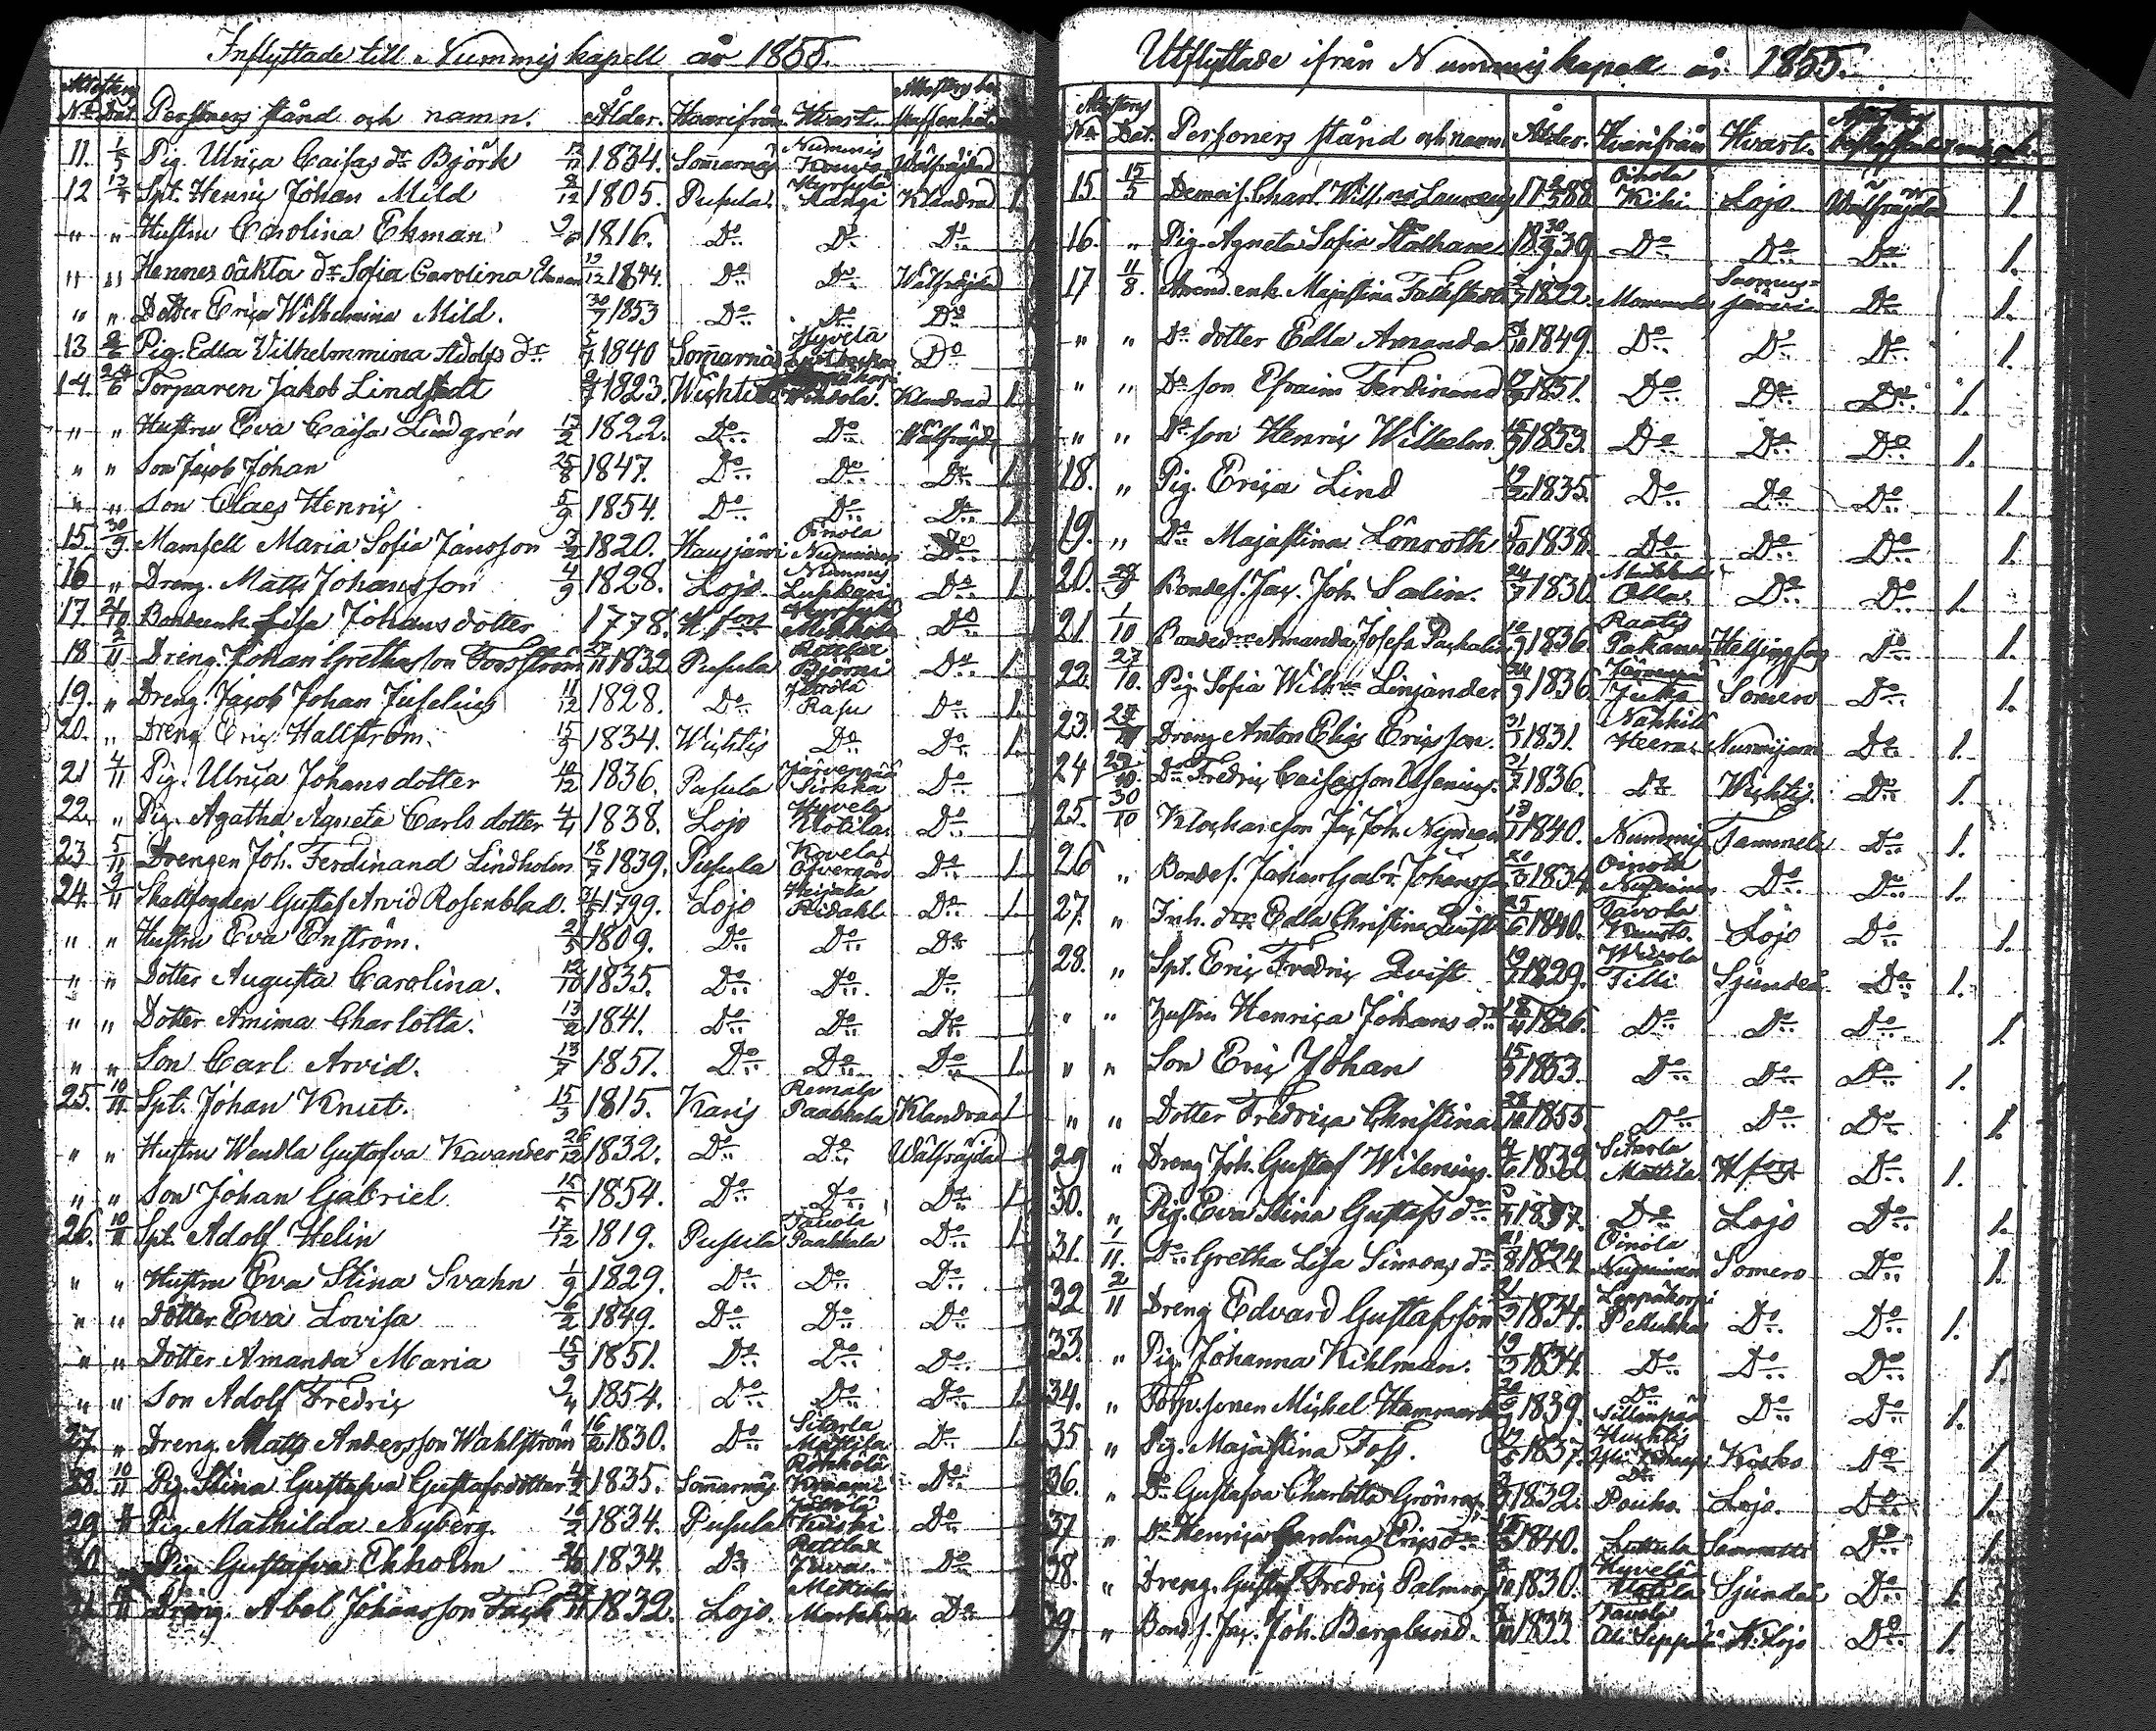 Inflyttade till Nummis kapell år 1855.
No Dat. Personers stånd och namn. Ålder. Hvarifrån Hvart.
11. 1/5 Pig. Ulrica Caisas dr Björk 1834. Somarnäs Nummis Wälfräjdad
12 Spt. Henric Johan Mild 1805. Pusula Hyrsylä Klandrad 1.
" " Hustru Carolina Ekman 1816. Do Do Do
" " Hennes oäkta dr Sofia Carolina Ekman 1844. Do Do Wälfräjdad
" " Dotter Erica Wilhelmina Mild. 30/7 1853 Do Do Do
13 2/6 Pig. Edla Vilhelmmina Adolfs dr 1840 Somarnäs Hyvelä Do
14. 24/6 Torparen Jakob Lindstedt 1823. Wichtis Klandrad 1.
" " Hustru Eva Caisa Lindgrén 13/2 1822. Do Do Wälfräjdg
" " Son Jacob Johan 25/8 1847. Do Do Do 1.
" " Son Claes Henric 5/9 1854. Do Do Do 1.
15. 30/9 Mamsell Maria Sofia Jansson 3/2 1820. Hausjärvi Oinola Nummines Do
16 " Dreng. Matts Johansson 4/9 1828. Lojo Nummis Lupkari Do 1.
17 Bondeenk. Lisa Johans dotter 1778. H:fors Do
18 2/11 Dreng. Johan Grethasson Forsström 27/11 1832 Pusula Do 1.
19. " Dreng. Jacob Johan Juselius 11/12 1828. Do Raju Do 1.
20. " Dreng Eric Hallström. 15/9 1834. Wichtis Do Do 1.
21 4/11 Pig. Ulrica Johans dotter 10/12 1836. Pusula Järvenpää Sirkka Do
22. " Pig. Agatha Agneta Carls dotter 4/4 1838. Lojo Hyvelä Klotila Do
23 5/11 Drengen Joh. Ferdinand Lindholm 18/7 1839. Pusula Kovela Öfvergård Do 1.
24. 9/11 Skallfogden Gustaf Arvid Rosenblad. 1799. Lojo Heijala Ridakl Do 1.
" " Hustru Eva Enström. 21/5 1809. Do Do Do
" " Dotter Augusta Carolina. 12/10 1835. Do Do Do
" " Dotter Amima Charlotta. 13/2 1841. Do Do Do
" " Son Carl Arvid. 13/7 1851. Do Do Do 1.
25. 10/11 Spt. Johan Knut. 15/3 1815. Karis Remälä Paakkala Klandrad 1
" " Hustru Wendla Gustafva Kavander 26/12 1832. Do Do Wälfräjdad
" " Son Johan Gabriel 15/5 1854. Do Do Do 1
26. 10/11 Spt. Adolf Helin 17/12 1819. Pusula Tavola Paakkala Do 1
" " Hustru Eva Stina Svahn 1/9 1829. Do Do Do
" " Dotter Eva Lovisa 6/2 1849. Do Do Do
" " Dotter Amanda Maria 15/3 1851. Do Do Do
" " Son Adolf Fredric 9/4 1854. Do Do Do 1.
27. " Dreng. Matts Andersson Wahlström 1830. Do Sitarla Mattila Do 1
28. 10/11 Pig. Stina Gustafva Gustafsdotter 1835. Somarnäs Do
29 Pig. Mathilda Nyberg. 16/2 1834. Pusula Do
30. Pig Gustafva Ekholm 1834. Do Do
31. Dreng. Abel Johansson 1832. Lojo. Do
Utflyttade ifrån Nummis kapell år 1855.
No Dat. Personers stånd och namn Ålder. Hvarifrån Hvart.
15. 15/5 Demois. Charl. Wilh. Oinola Kihi Lojo Wälfräjdad 1.
16. " Pig. Agneta Sofia Stålhane 1839 Do Do Do 1.
17 11/8. enk. Majastina 1822. Do 1.
" " Do dotter Edla Amanda 1849. Do Do Do 1.
" " Do son Efraim Ferdinand 1851. Do Do Do 1.
" " Do son Henric Wilhelm 1853. Do Do Do 1.
18. " Pig. Erica Lind 1835. Do Do Do 1.
19. " Do Majastina Lönroth 1838. Do Do Do 1.
20. Bondes. Jac. Joh. Salin. 24/7 1830 Do Do 1.
21. 1/10 Bondedr Amanda Josefa 1836. Helsingfors Do 1.
22. 27/10. Pig. Sofia Wilh:na Linjander 1836. Järvenpää Juka Somero Do 1.
23. Dreng Anton Elias Ericsson. 1831. Nurmijärvi Do 1.
24 29/10. Do Fredric Caisasson 1836. Do Wichtis. Do 1.
25. 30/10 Klockareson Jac. Joh. Nyman 1840. Nummis Tammela Do 1.
26 " Bondes. Johan Gabr. Johansson 1834. Oinola Nummines Do Do 1.
27. " Inh. dr Edla Christina Quist 1840. Tavola Lojo Do 1.
28. " Spt. Eric Fredric Qvist 1829. Wivola Tilli Sjundeå Do 1.
" " Hustru Henrica Johans dr 1826. Do Do Do 1.
" " Son Eric Johan 1853. Do Do Do 1.
" " Dotter Fredrica Christina 1855. Do Do Do 1.
29 " Dreng Joh. Gustaf Wilenius. 1832 Sitarla Mattila H:fors Do 1.
30. " Pig. Eva Stina Gustafs dr 1837. Do Lojo Do 1.
31. 1/11. Do Gretha Lisa Simons dr 1824 Oinola Nummines Somero Do 1.
32 2/11 Dreng Edvard Gustafsson 1834. Leppäkorpi Do Do 1.
33. " Pig. Johanna Kihlman. 1834. Do Do Do 1.
34. " Torp.sonen Michel 1839. Do Sillanpää Do Do 1.
35 " Pig. Majastina Foss. 1837. Huchtis Kisko Do 1
36. " Do Gustafva Charlotta Grönroos 1832. Do Pouho. Lojo. Do 1.
37 " Do Henrica Carolina Ericsdr 1840. Luttula Sammatti Do 1.
38. " Dreng. Gustaf Fredric Palmroos 1830. Hyvelä Klotila Sjundeå Do 1.
39. " Bond s. Jac. Joh. Berglund. 1833 Tavola Ali Seppälä K. Lojo Do 1.